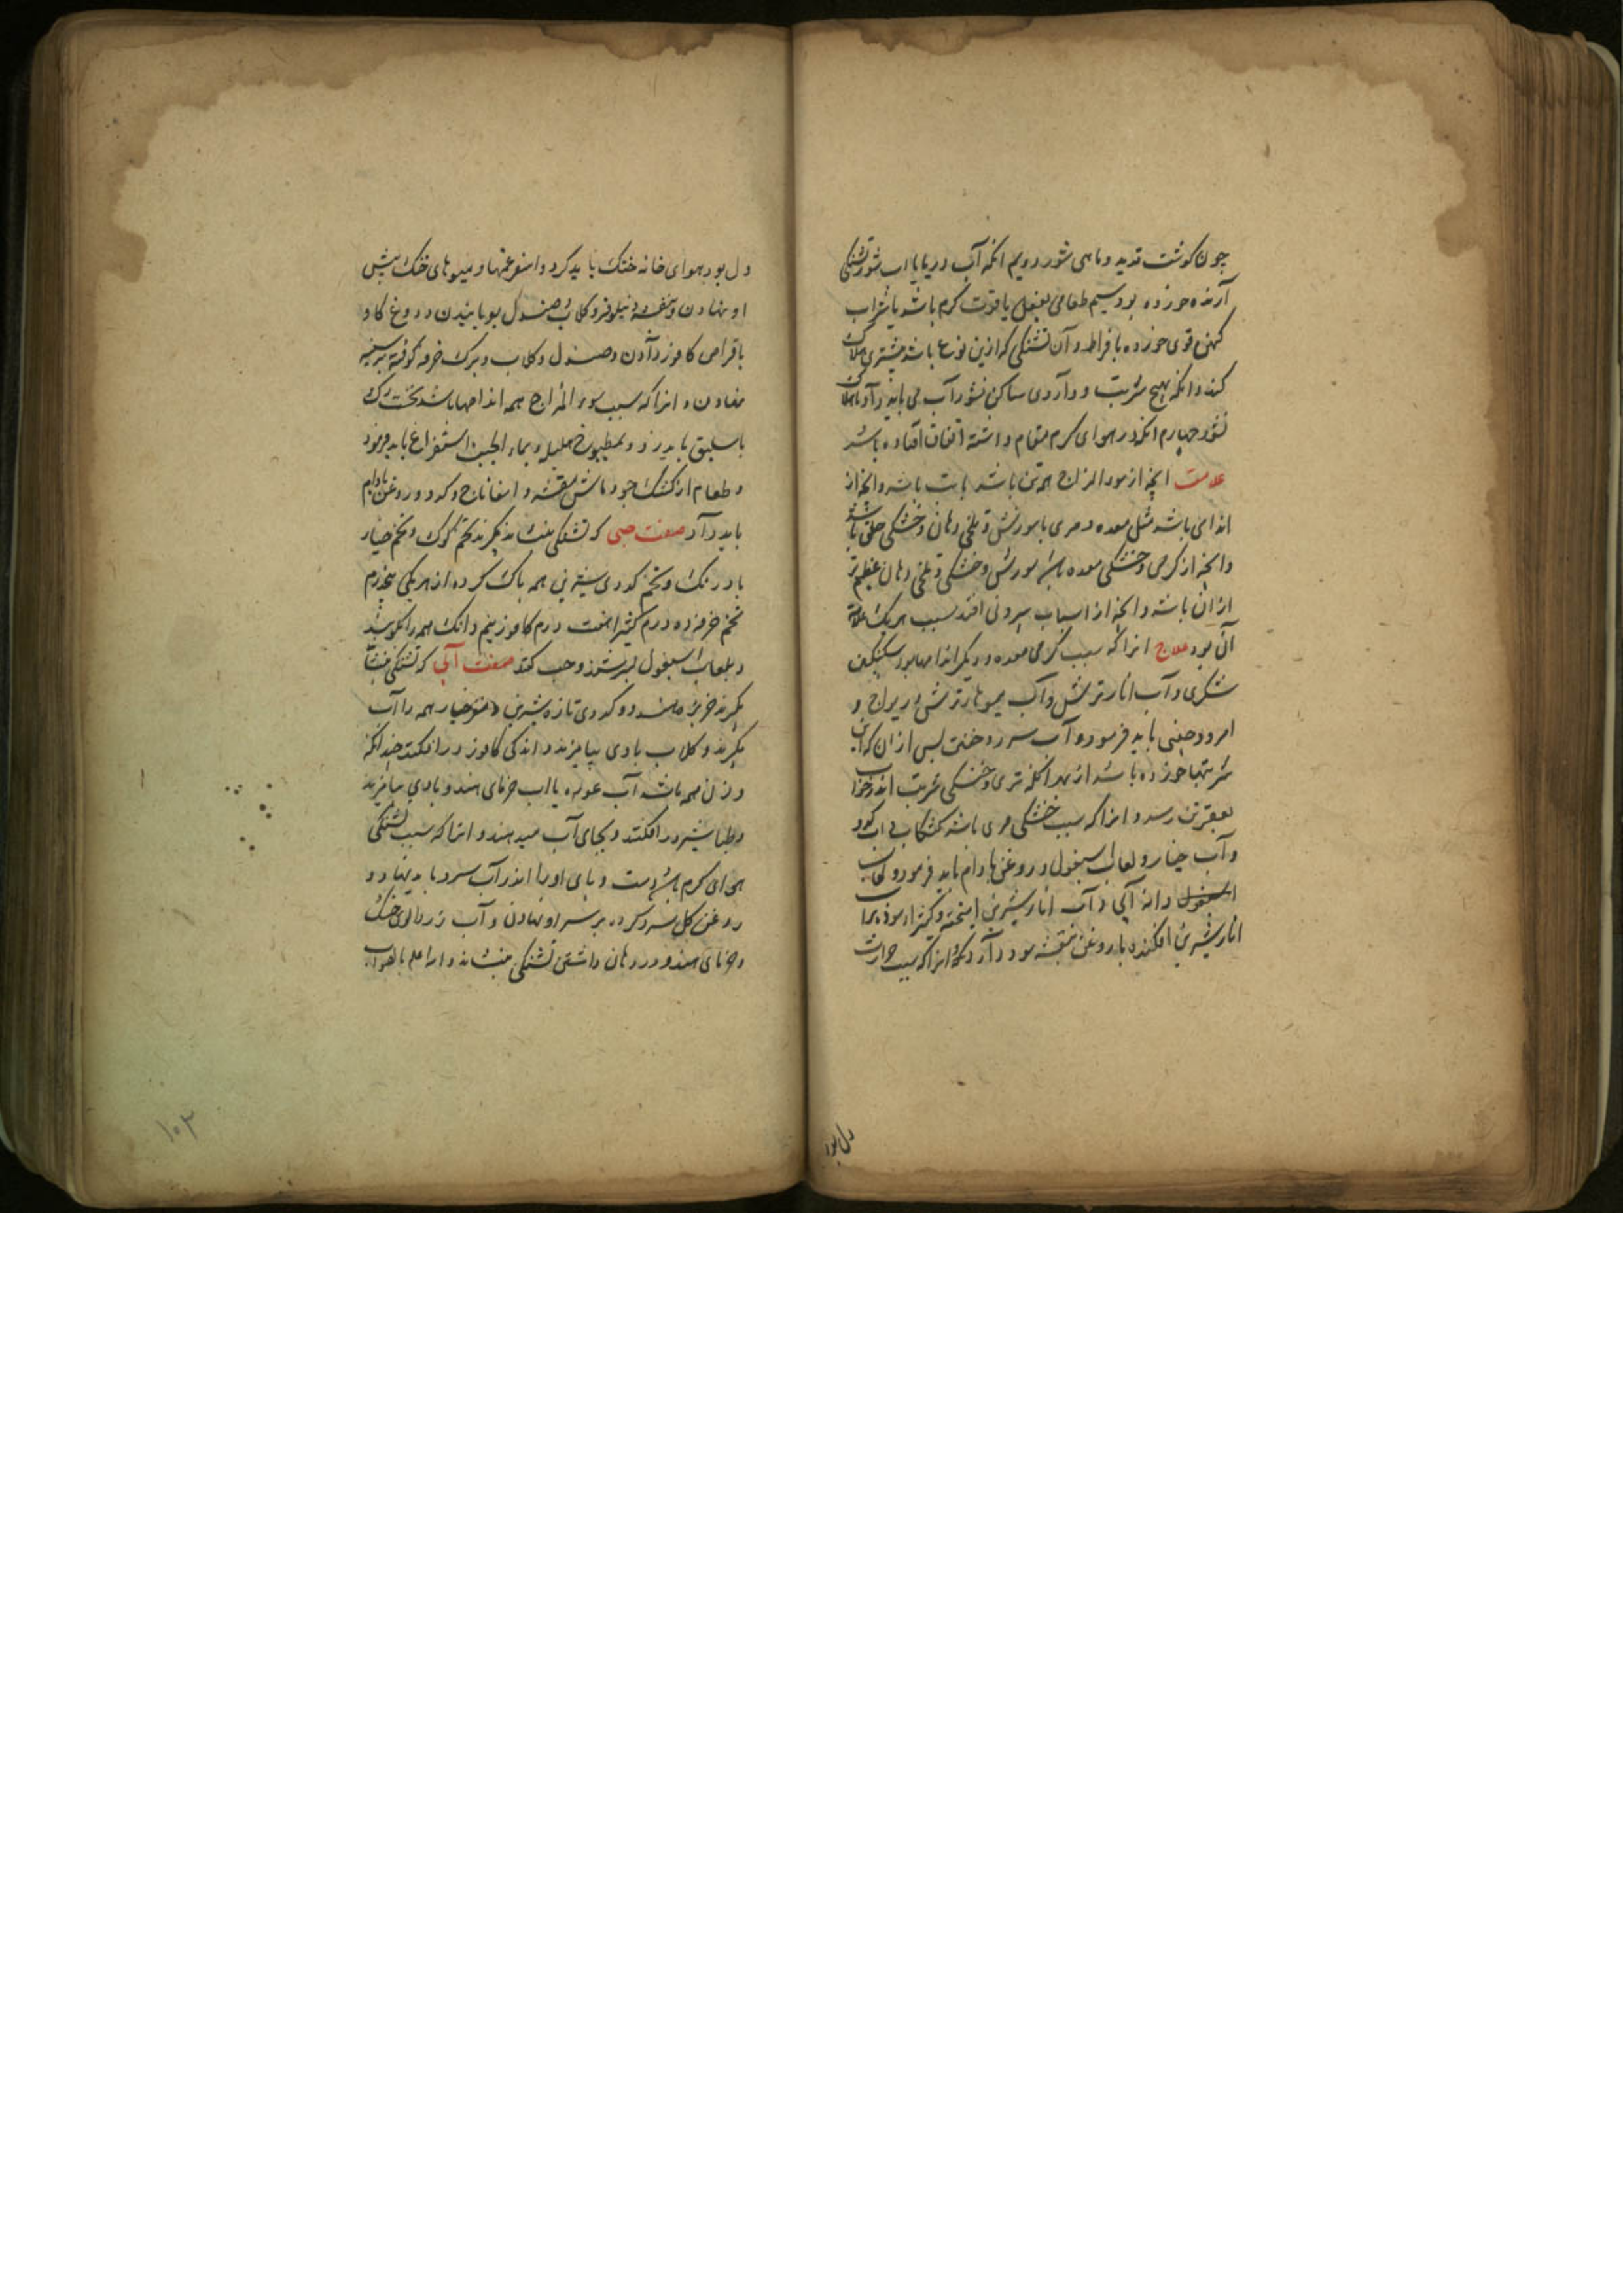 چون گوشت قدید و ماهی شور دویم انکه آب دریا یا اب شور تشنکی
آرنده خورده بود سیم طعامی بفعل یا قوت کرم باشد یا شراب
کهن قوی خورده بافراط و آن تشنکی که ازین نوع باشد بیشتری هلاک
کند و انکه بهیچ شربت و داروی ساکن نشود آب می باید داد تا هلاک
نشود چهارم انکه در هوای کرم مقام داشته اتفاق افتاده باشد
علامت انچه از سوء المزاج همه تن باشد باشد و انچه از
اندامی باشد مثل معده و مری با سوزش و تلخی دهان و خشکی حلق باشد
و انچه از کرمی و خشکی معده باشد سوزش و خشکی و تلخی دهان عظیم تر
ازان باشد و انچه از اسباب بیرونی افتد سبب هر یک علامت
آن بود علاج انرا که سبب کرمی معده و دیکر اندامها بود سکنکبین
شکری و آب انار ترش و آب میوهاء ترش و ریواج و
امرود چینی باید فرمود و آب سرد و خفتن پس ازان که این
شربتها خورده باشد از بهر انکه تری و خنکی شربت اندر خواب
بقعر تن رسد و انرا که سبب خشکی مری باشد کشکاب و اب کدو
و آب خیار و لعاب اسبغول و روغن بادام باید فرمود و لعاب
اسبغول و دانه آبی و آب انار شیرین امیخته و کتیرا سوده با
انار شیرین افکنده با روغن بنفشه سود دارد و انرا که سبب حرارت
دل بود
دل بود بهوای خانه خنک باید کرد و اسفرغمها و میوهای خنک پیش
او نهادن و بنفشه و نیلوفر و کلاب و صندل بویانیدن و دوغ کاو
با قراص کافور دادن و صندل و کلاب و برک خرفه کوفته بر سینه
نهادن و انرا که سبب سوء المزاج همه اندامها باشد نخست رک
باسلیق باید زد و بمطبوخ هلیله و بماء الجبن استفراغ باید فرمود
و طعام از کشک جو و ماش مقشر و اسفاناخ و کدو و روغن بادام
باید داد صفت حبی که تشنکی بنشاند بکیرند تخم کوک و تخم خیار
بادرنک و تخم کدوی شیرین همه پاک کرده از هر یکی پنجدرم
تخم خرفه ده درم کتیرا هفت درم کافور نیم دانک همه را بکوبند
و بلعاب اسبغول بسرشند و حب کنند صفت آبی که تشنکی بنشاند
بکیرند خربزه هندو و کدوی تازه شیرین و خیار همه را آب
بکیرند و کلاب با وی بیامیزند و اندکی کافور در افکنند چندانکه
وزن همه باشد آب غوره یا اب خرمای هندو با وی بیامیزند
و طباشیر در افکنند و بجای آب میدهند و انرا که سبب تشنکی
هوای کرم باشد دست و پای او را اندر آب سرد باید نهاد و
روغن کل سرد کرده بر سر او نهادن و آب زردالوی خنک
و خرمای هندو در دهان داشتن تشنکی بنشاند و الله اعلم بالصواب
۱۰۲